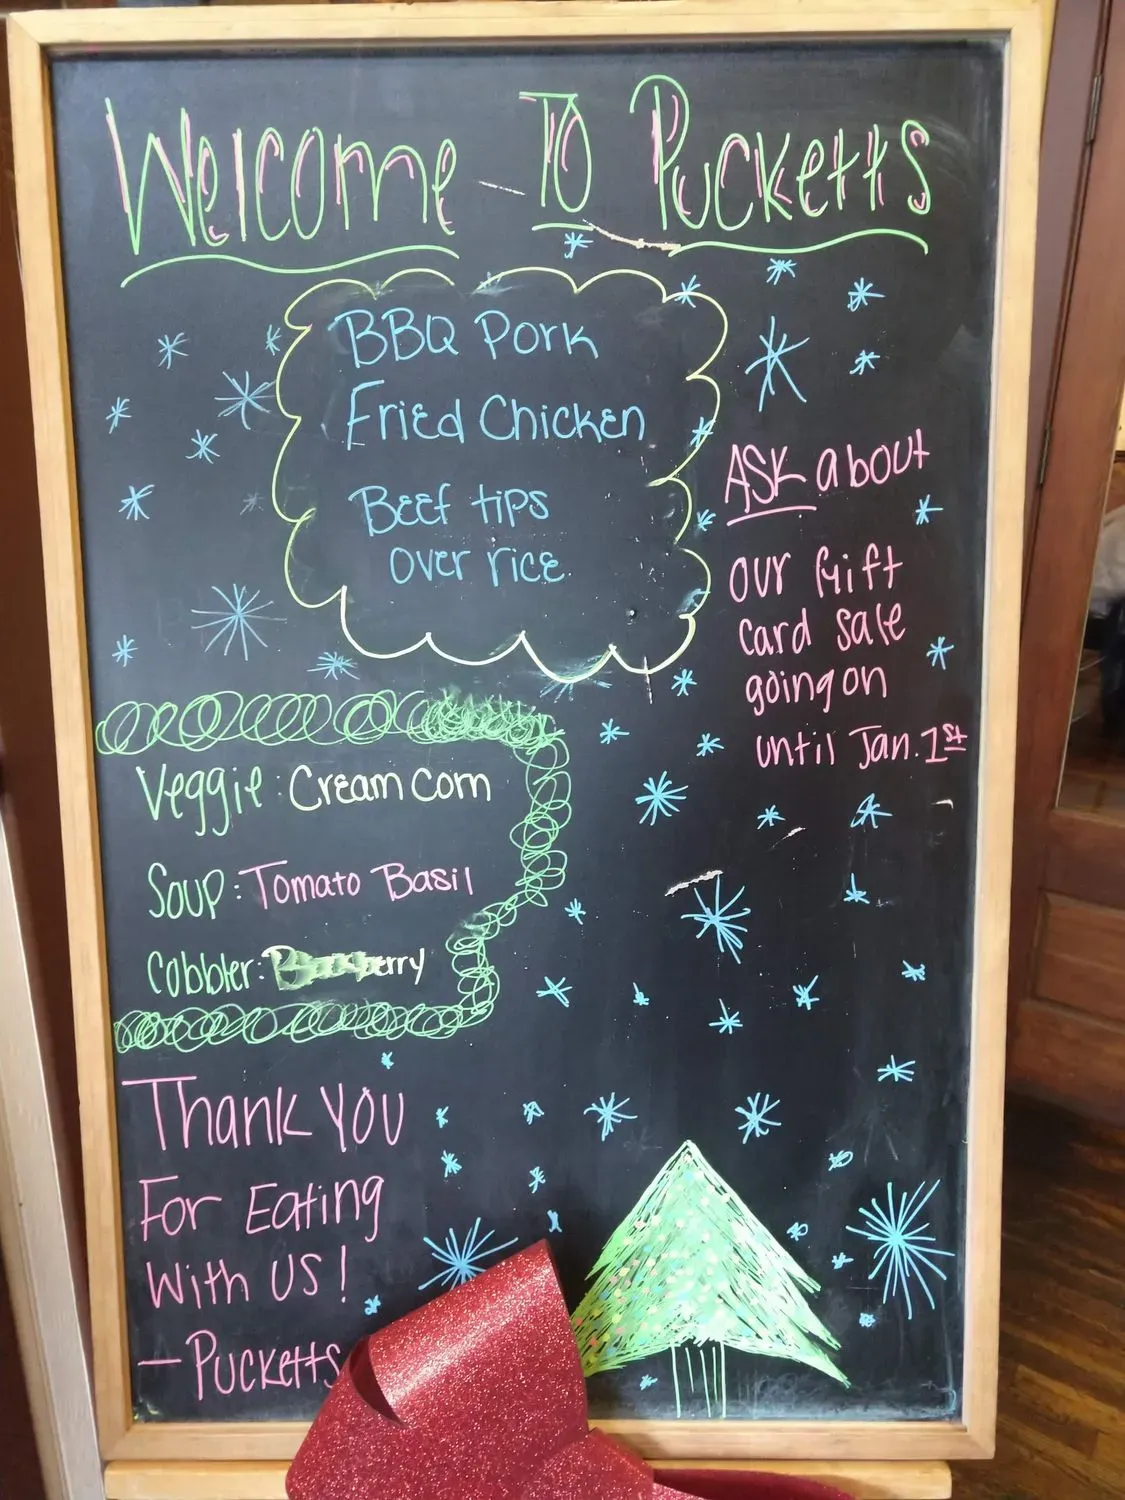 Welcome To Pucketts
BBQ Pork
Fried Chicken
Beef tips
over rice
ASK about
our Gift
card sale
going on
until Jan. 1st
Veggie: Cream corn
Soup: Tomato Basil
Cobbler:
Thank You
For Eating
With US!
— Pucketts